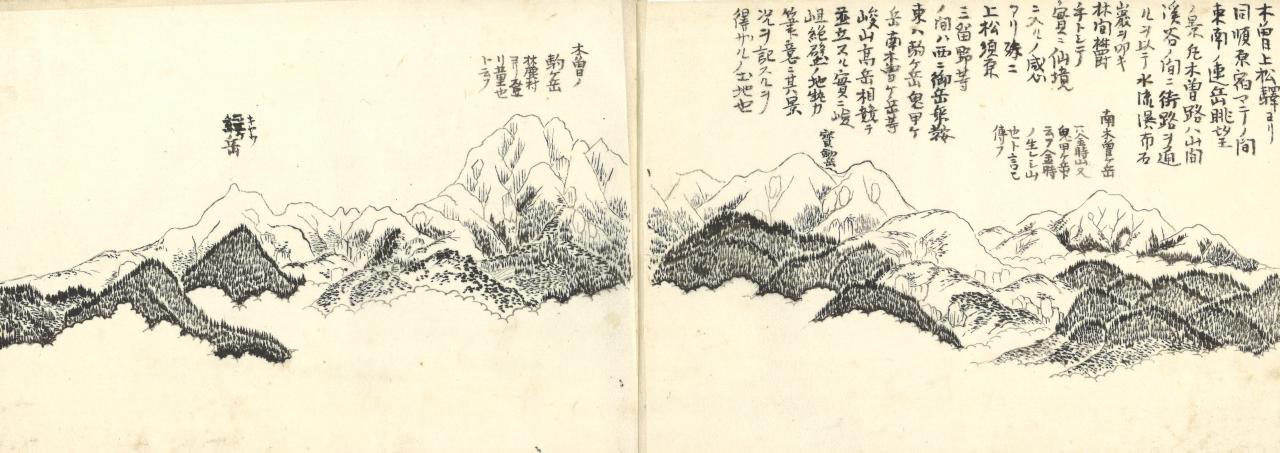 木曽上松驛ヨリ
同順原宿マテノ間
東南ノ連岳眺望
ノ景凡木曽路ハ山間
溪谷ノ間ニ街路ヲ通
ルヲ以テ水流瀑布石
巌ヲ叩キ
林間樹欝
手トシテ
實ニ仙境
ニ入ルノ感心
アリ殊ニ
上松須原
三留野等
ノ間ハ西ニ御岳乗鞍
東ハ駒ヶ岳鬼甲ヶ
岳南木曽ヶ岳等
峻山高岳相競テ
並立スル實ニ峻
岨絶壁ノ地勢
筆意ニ其景
况ヲ記スルヲ
得サルノ土地也
南木曽ヶ岳
一ハ金時山又
鬼甲ヶ岳ト
云フ金時
ノ生レシ山
也ト言ヒ
傳フ
寶劔岳
木曽ノ
駒ヶ岳
荻原村
ヨリ登
リ五里也
トニフ
キヤウ
岳